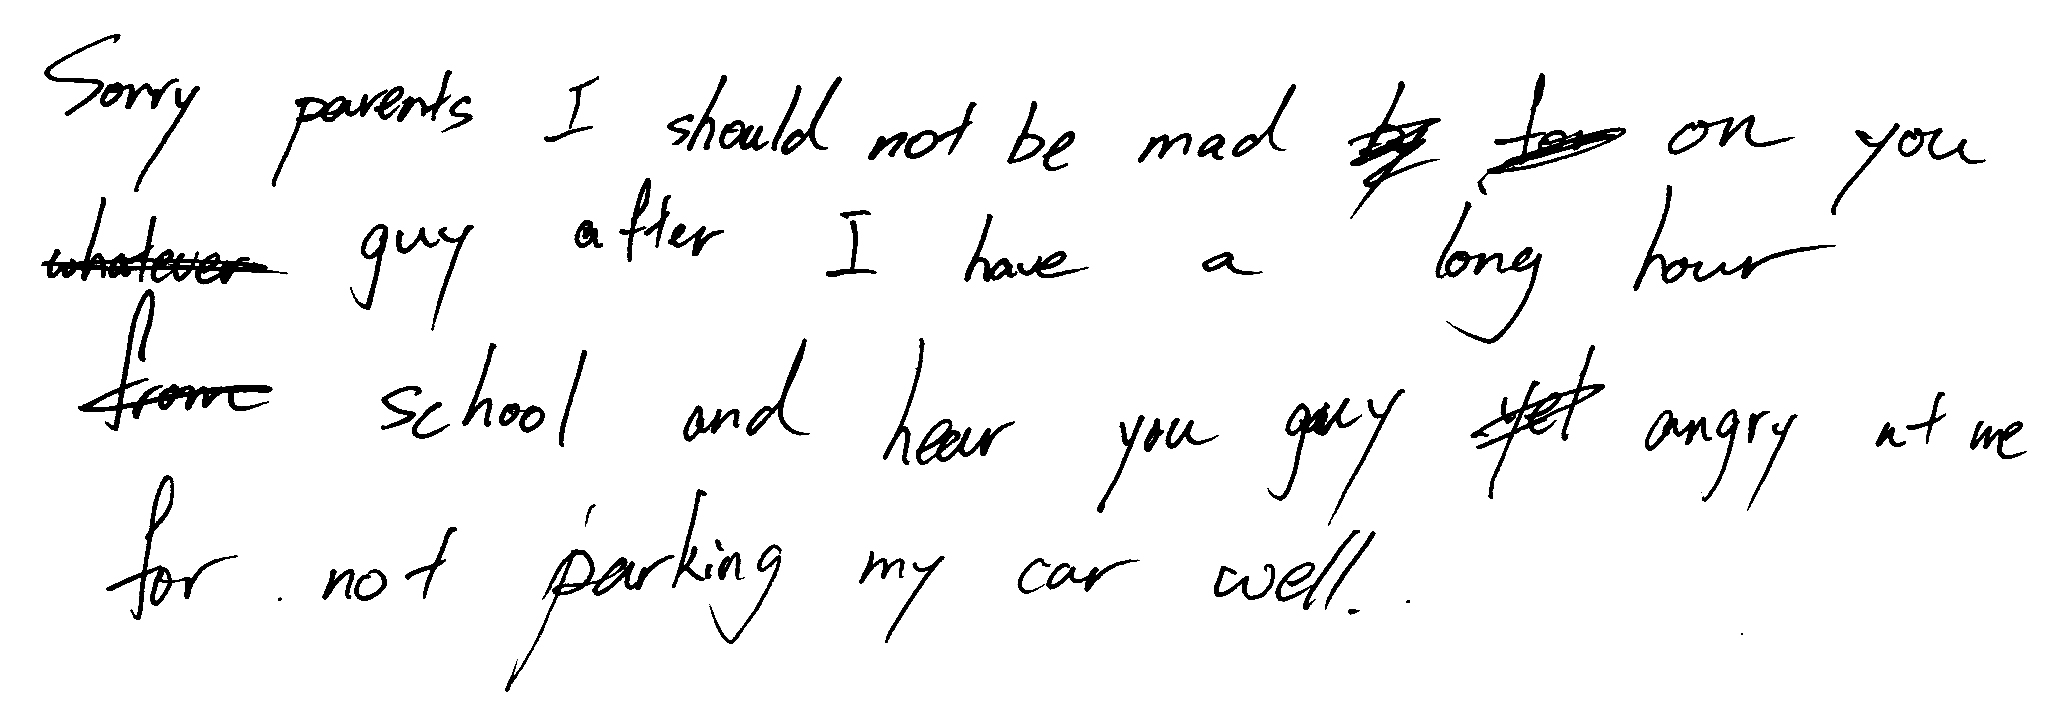 Sorry parents I should not be mad on you
guy after I have a long hour
school and hear you guy angry at me
for not parking my car well.